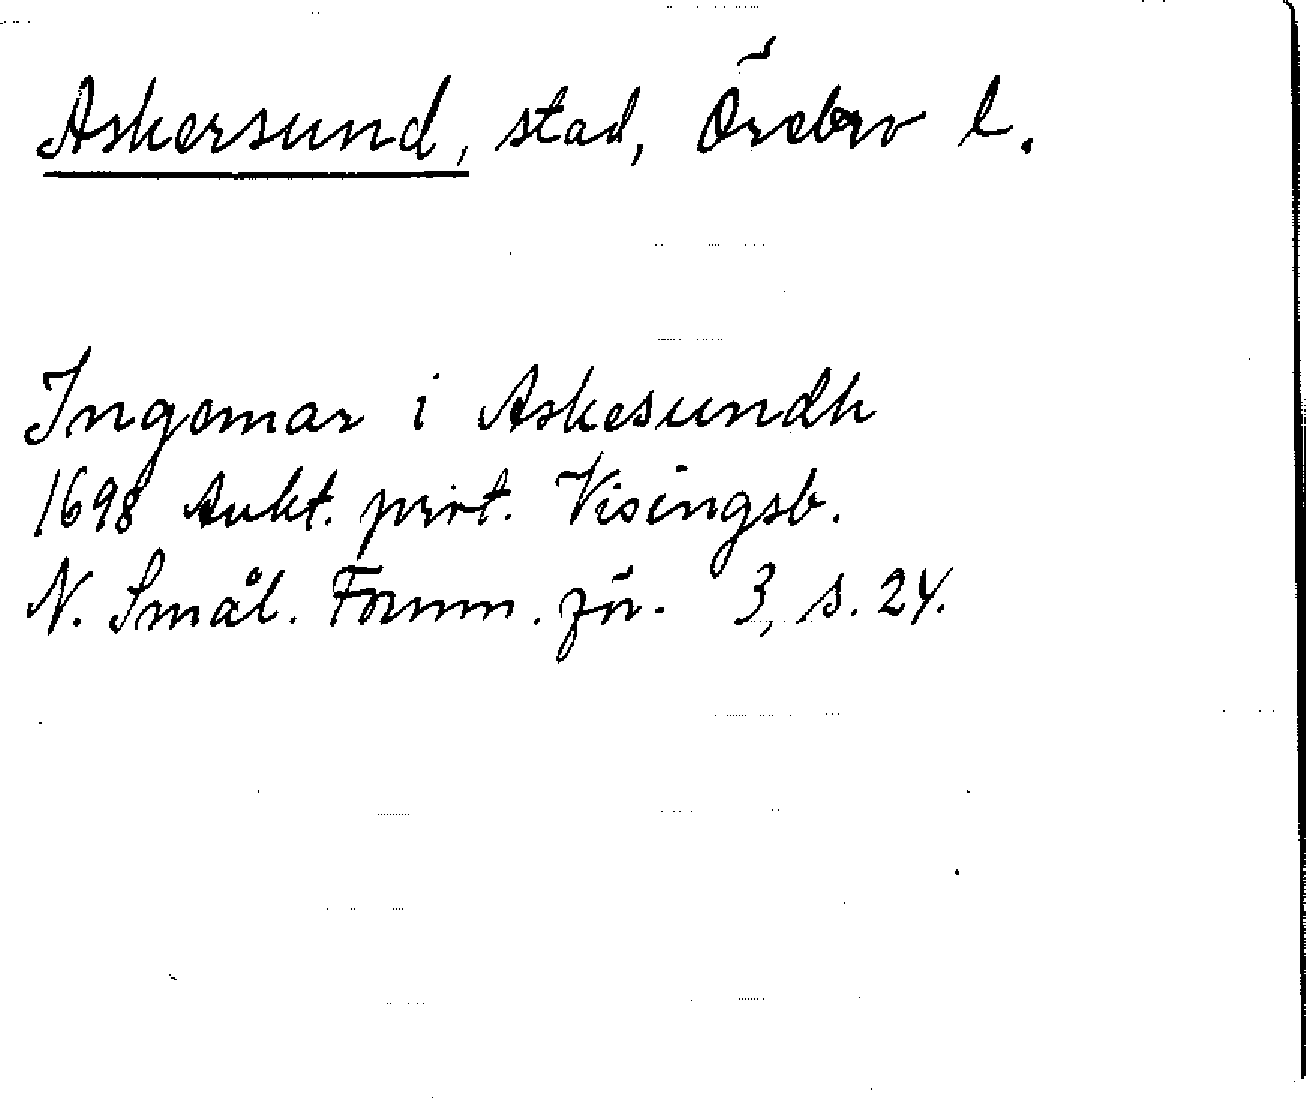 Askersund, stad, Örebro l.
Ingemar i Askesundh
1698 Aukt. prot. Visingsb.
N. Smål. Fornm. för. 3, s. 24.